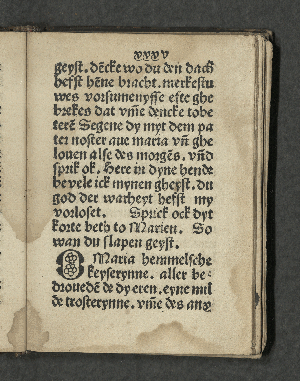 xxxv
geyst. dēcke wo du den dach
hefst hēne bracht. merkestu
wes vorsumenysse efte ghe
brekes dat vm̄e dencke tobe
terē Segene dy myt dem pa
ter noster aue maria vn̄ ghe
louen alse des morgēs. vn̄d
sprik ok. Here in dyne hende
bevele ick mynen gheyst. du
god der warheyt hefst my
vorloset. Sprick ock dyt
korte beth to Marien. So
wan du slapen geyst.
O Maria hemmelsche
keyserynne. aller be
droueden̄ de dy eren. eyne mil
de trosterynne. vm̄e des anx